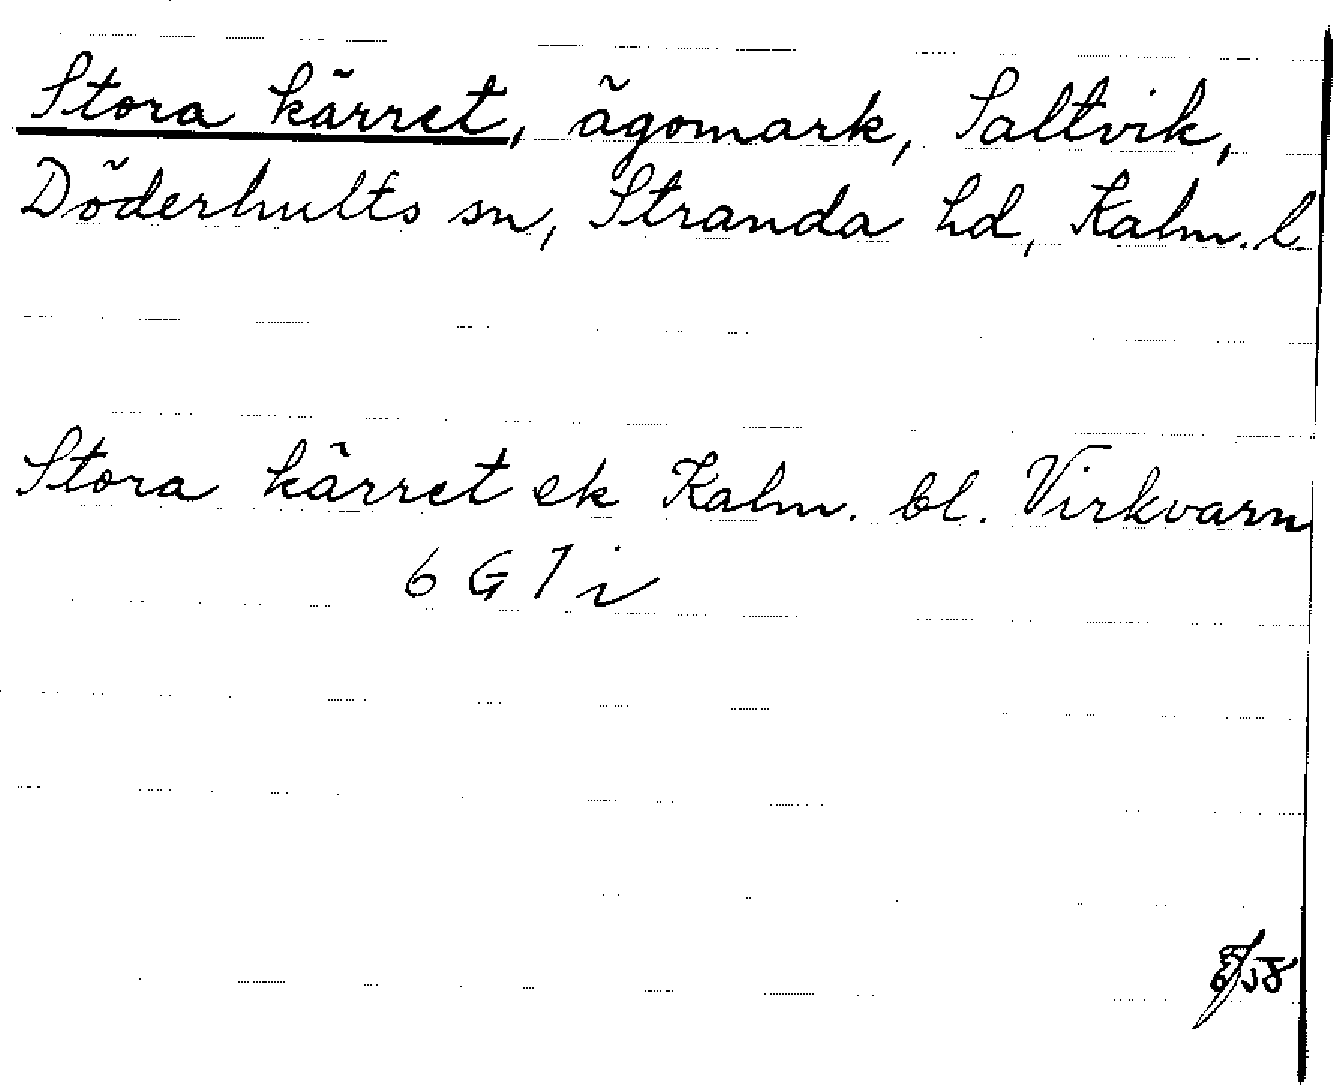 Stora kärret, ägomark, Saltvik,
Döderhults sn, Stranda hd, Kalm. l.
Stora kärret ek Kalm. bl. Virkvarn
6 G 7 i